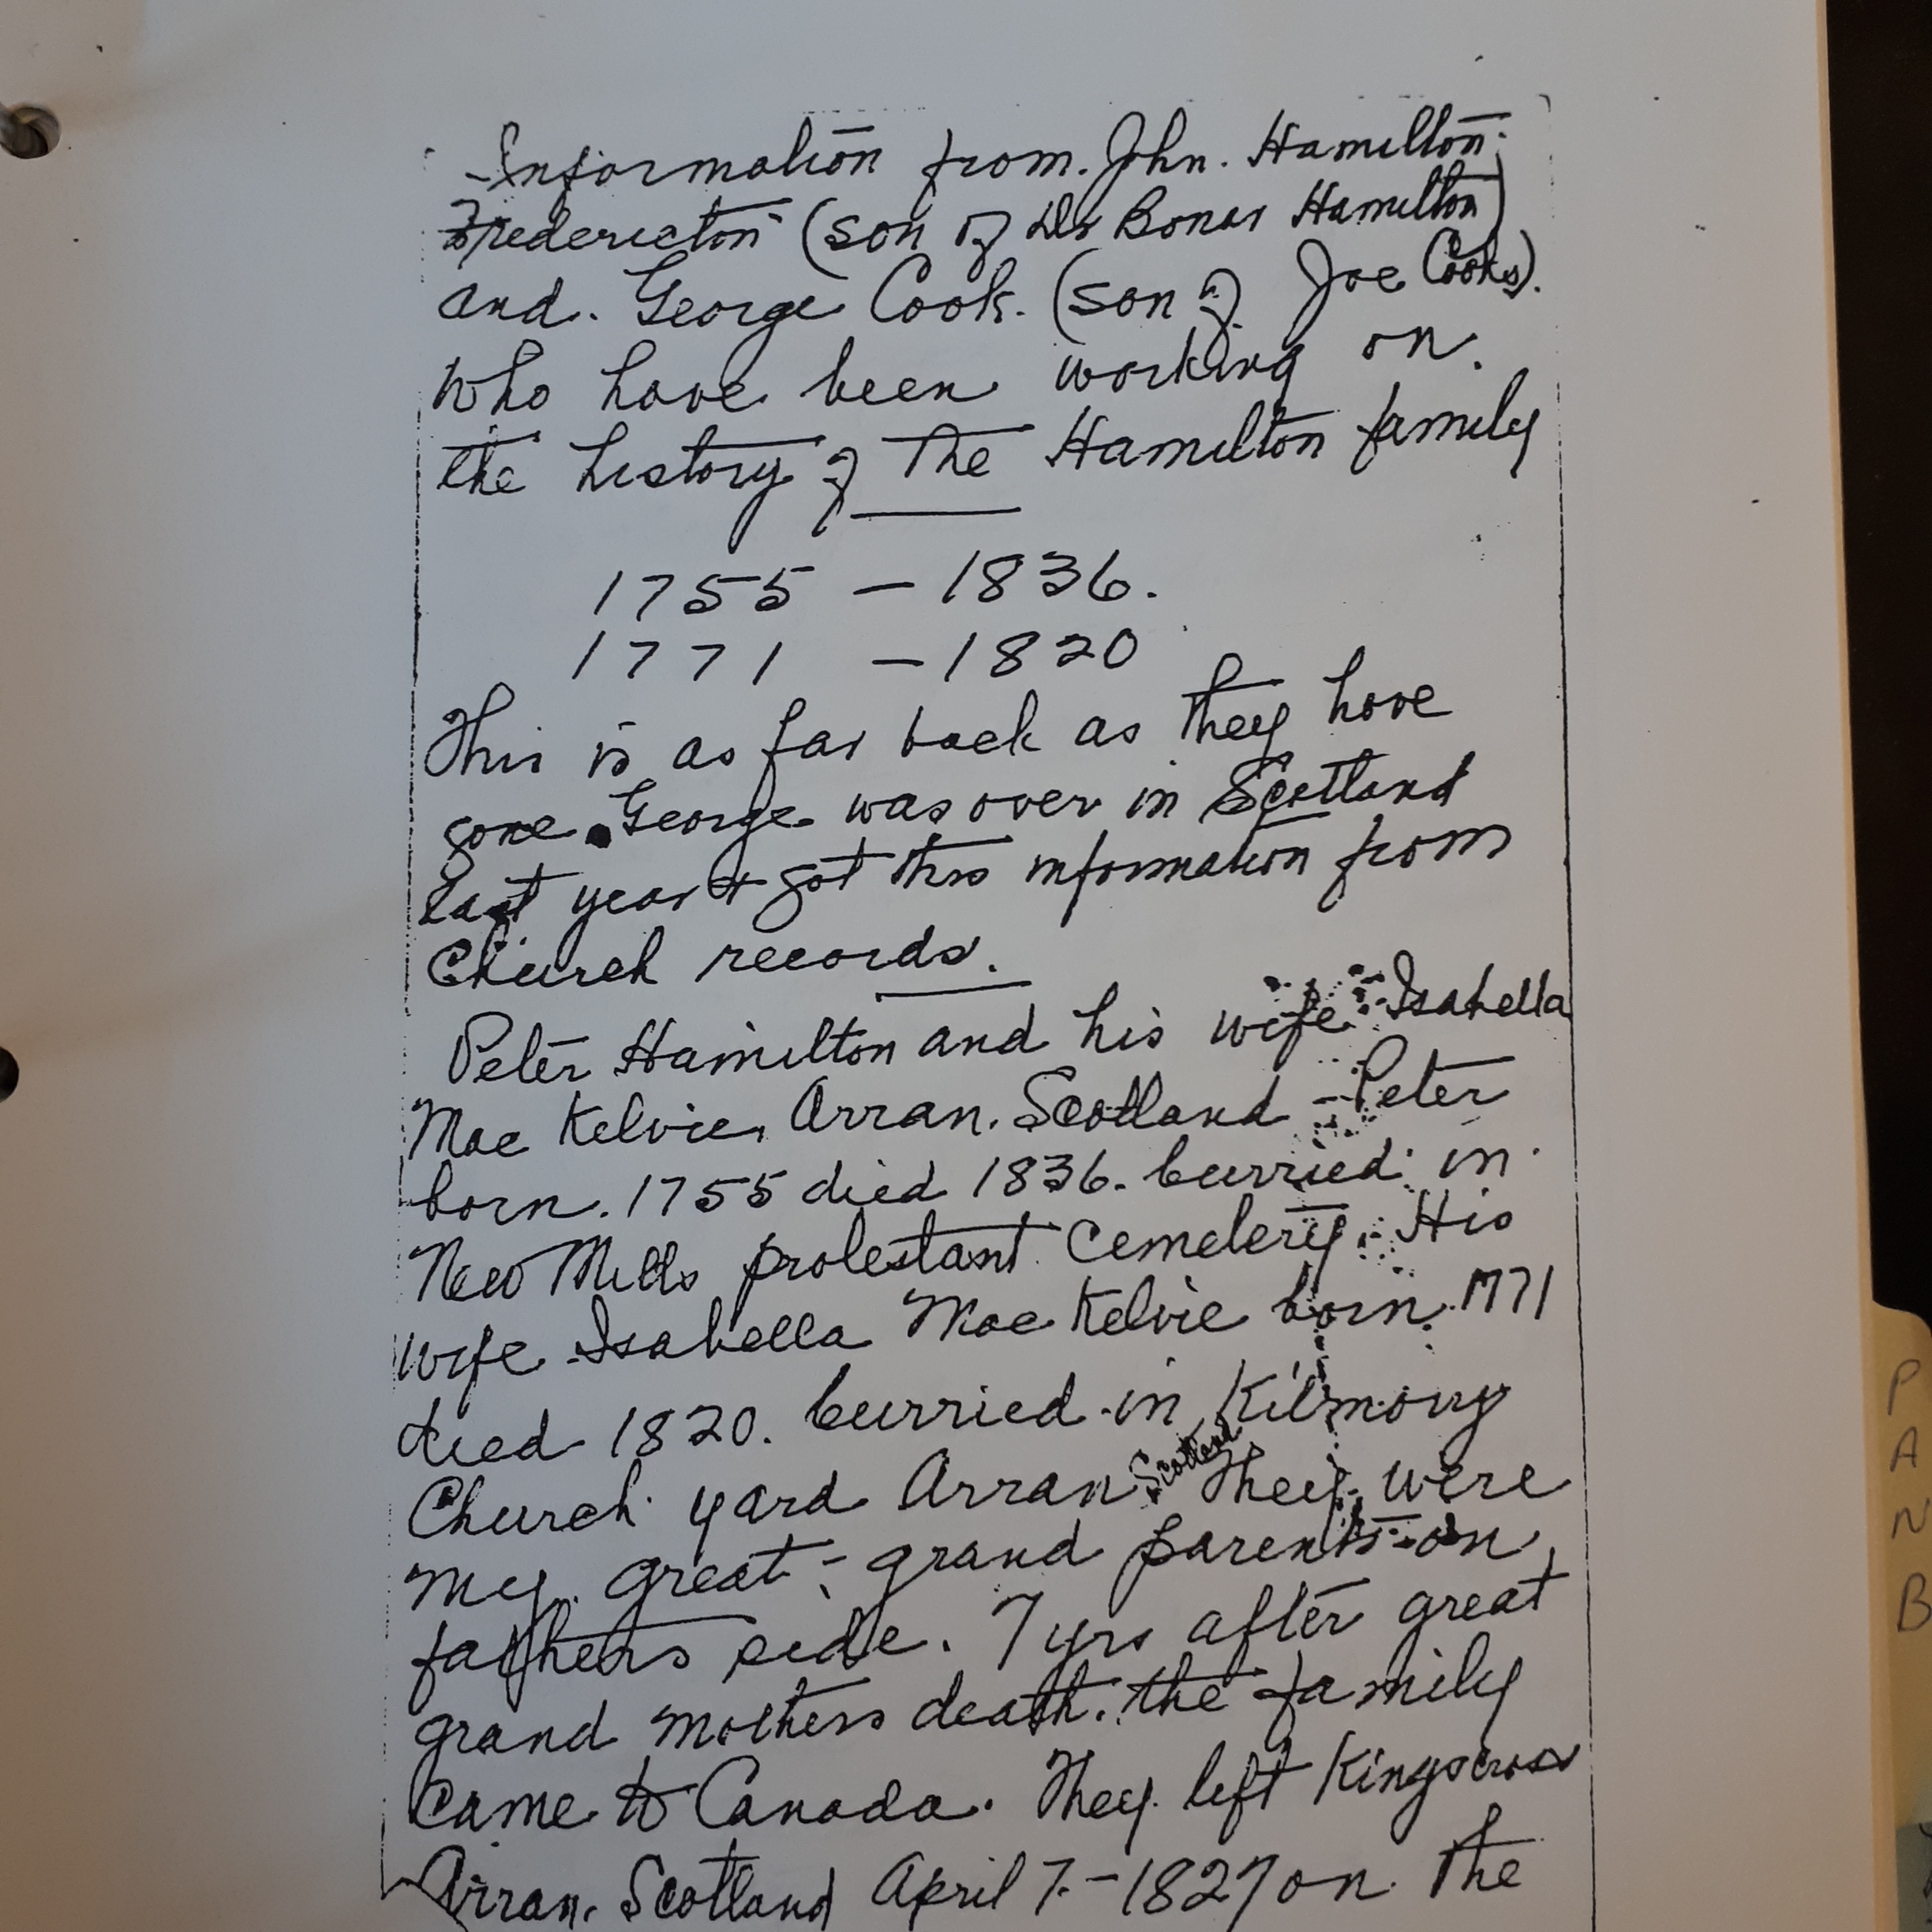 Information from. John. Hamilton
Fredericton (son of Dr Bonar Hamilton)
and. George Cook. (son of Joe Cooks).
who have been working on.
the history of The Hamilton family
1755 - 1836.
1771 - 1820
This is as far back as they have
gone. George was over in Scotland
last year & got this information from
Church records.
Peter Hamilton and his wife Isabella
MacKelvie, Arran. Scotland - Peter
born. 1755 died 1836. burried in
New Mills protestant Cemetery. His
wife Isabella MacKelvie born. 1771
died 1820. burried in Kilmory
Church yard Arran Scotland They were
my great-grand parents on
fathers side. 7 yrs after great
grand mothers death. the family
came to Canada. They left Kingscross
Arran. Scotland April 7.-1827 on the
P
A
N
B